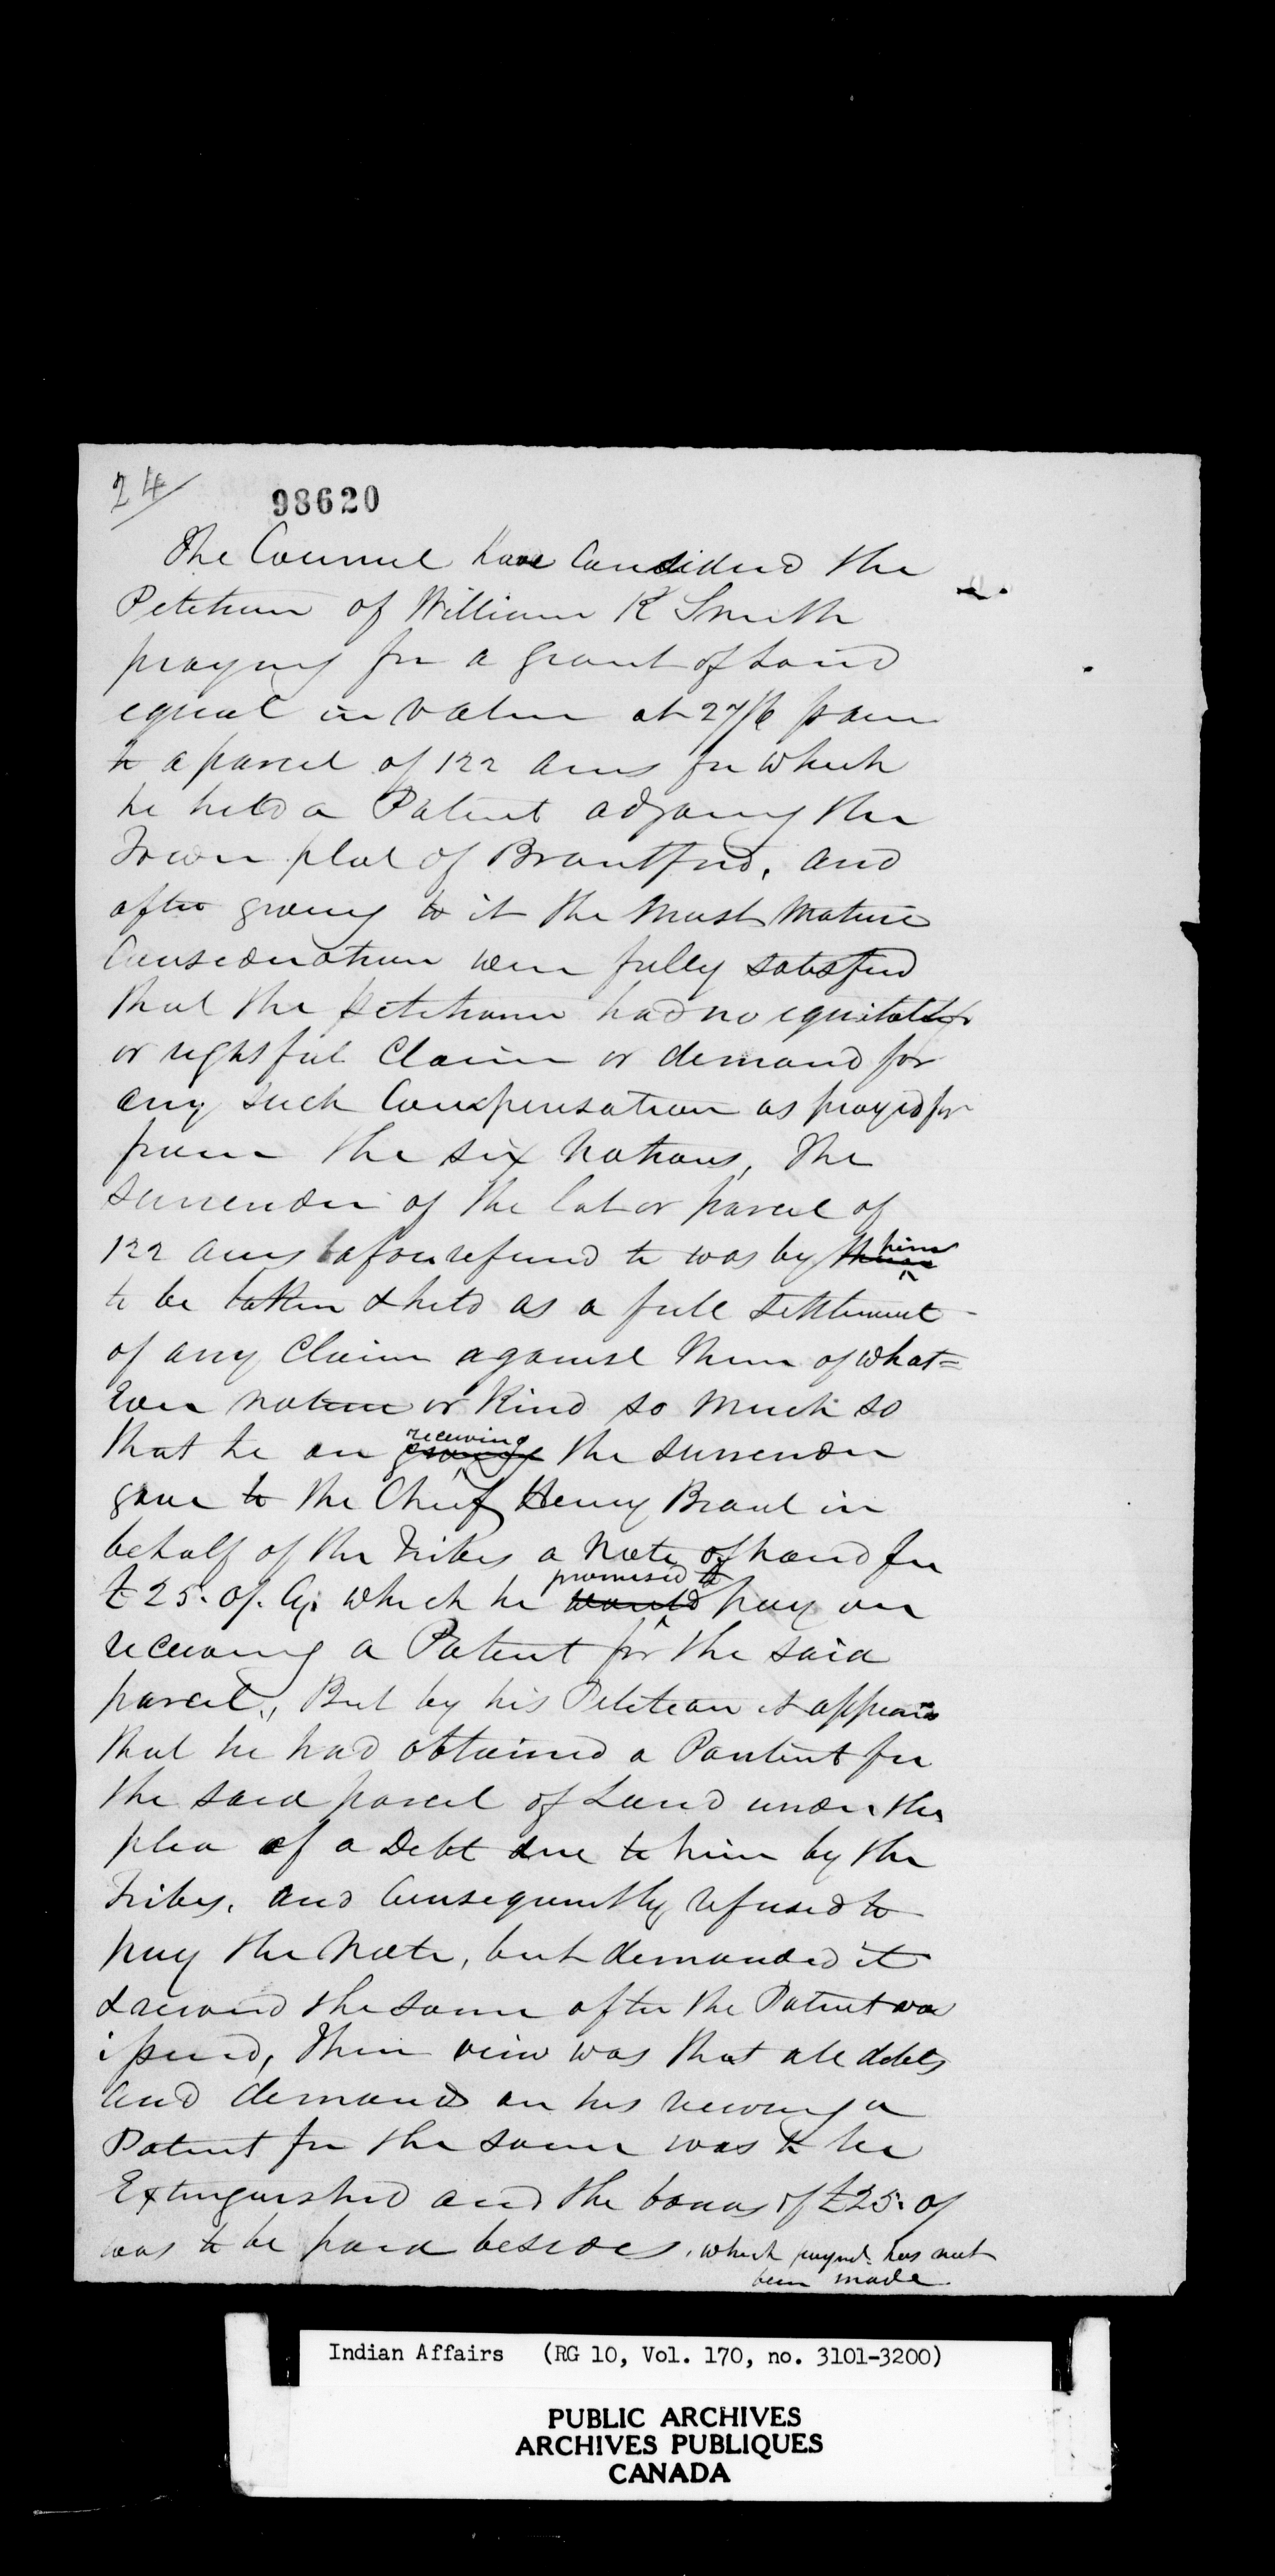 24/
98620
The Council have Considered the
Petition of William K Smith
praying for a grant of Land
equal in value at 27/6 p acre
to a parcel of 122 acres for which
he held a Patent adjoing the
Town plat of Brantford, and
after giving to it the most mature
Consideration were fully satisfied
that the petitioner had no equitable
or rightful Claim or demand for
any such Compensation as prayed for
from the six Nations, The
surrender of the lot or parcel of
122 acres before refered to was by him
to be taken & held as a full settlement
of any Claim against them of what=
ever nature or kind so much so
that he on receiving the surrender
gave to the Chief Henry Brant in
behalf of the Tribes a Note of hand for
£25. of. Cy: which he promised to pay on
receiving a Patent for the said
parcel., But by his Petition it appears
that he had obtained a Pantent for
the said parcel of Land under the
plea of a Debt due to him by the
Tribes, and Consequently refused to
pay the Note, but demanded it
& received the same after the Patent was
issued, Their view was that all debts
and demands on his receiving a
Patent for the same was to be
Extinguished and the bonus of £25. of
was to be paid besides, which paymt. has not
been made
Indian Affairs (RG 10, Vol. 170, no. 3101-3200)
PUBLIC ARCHIVES
ARCHIVES PUBLIQUES
CANADA